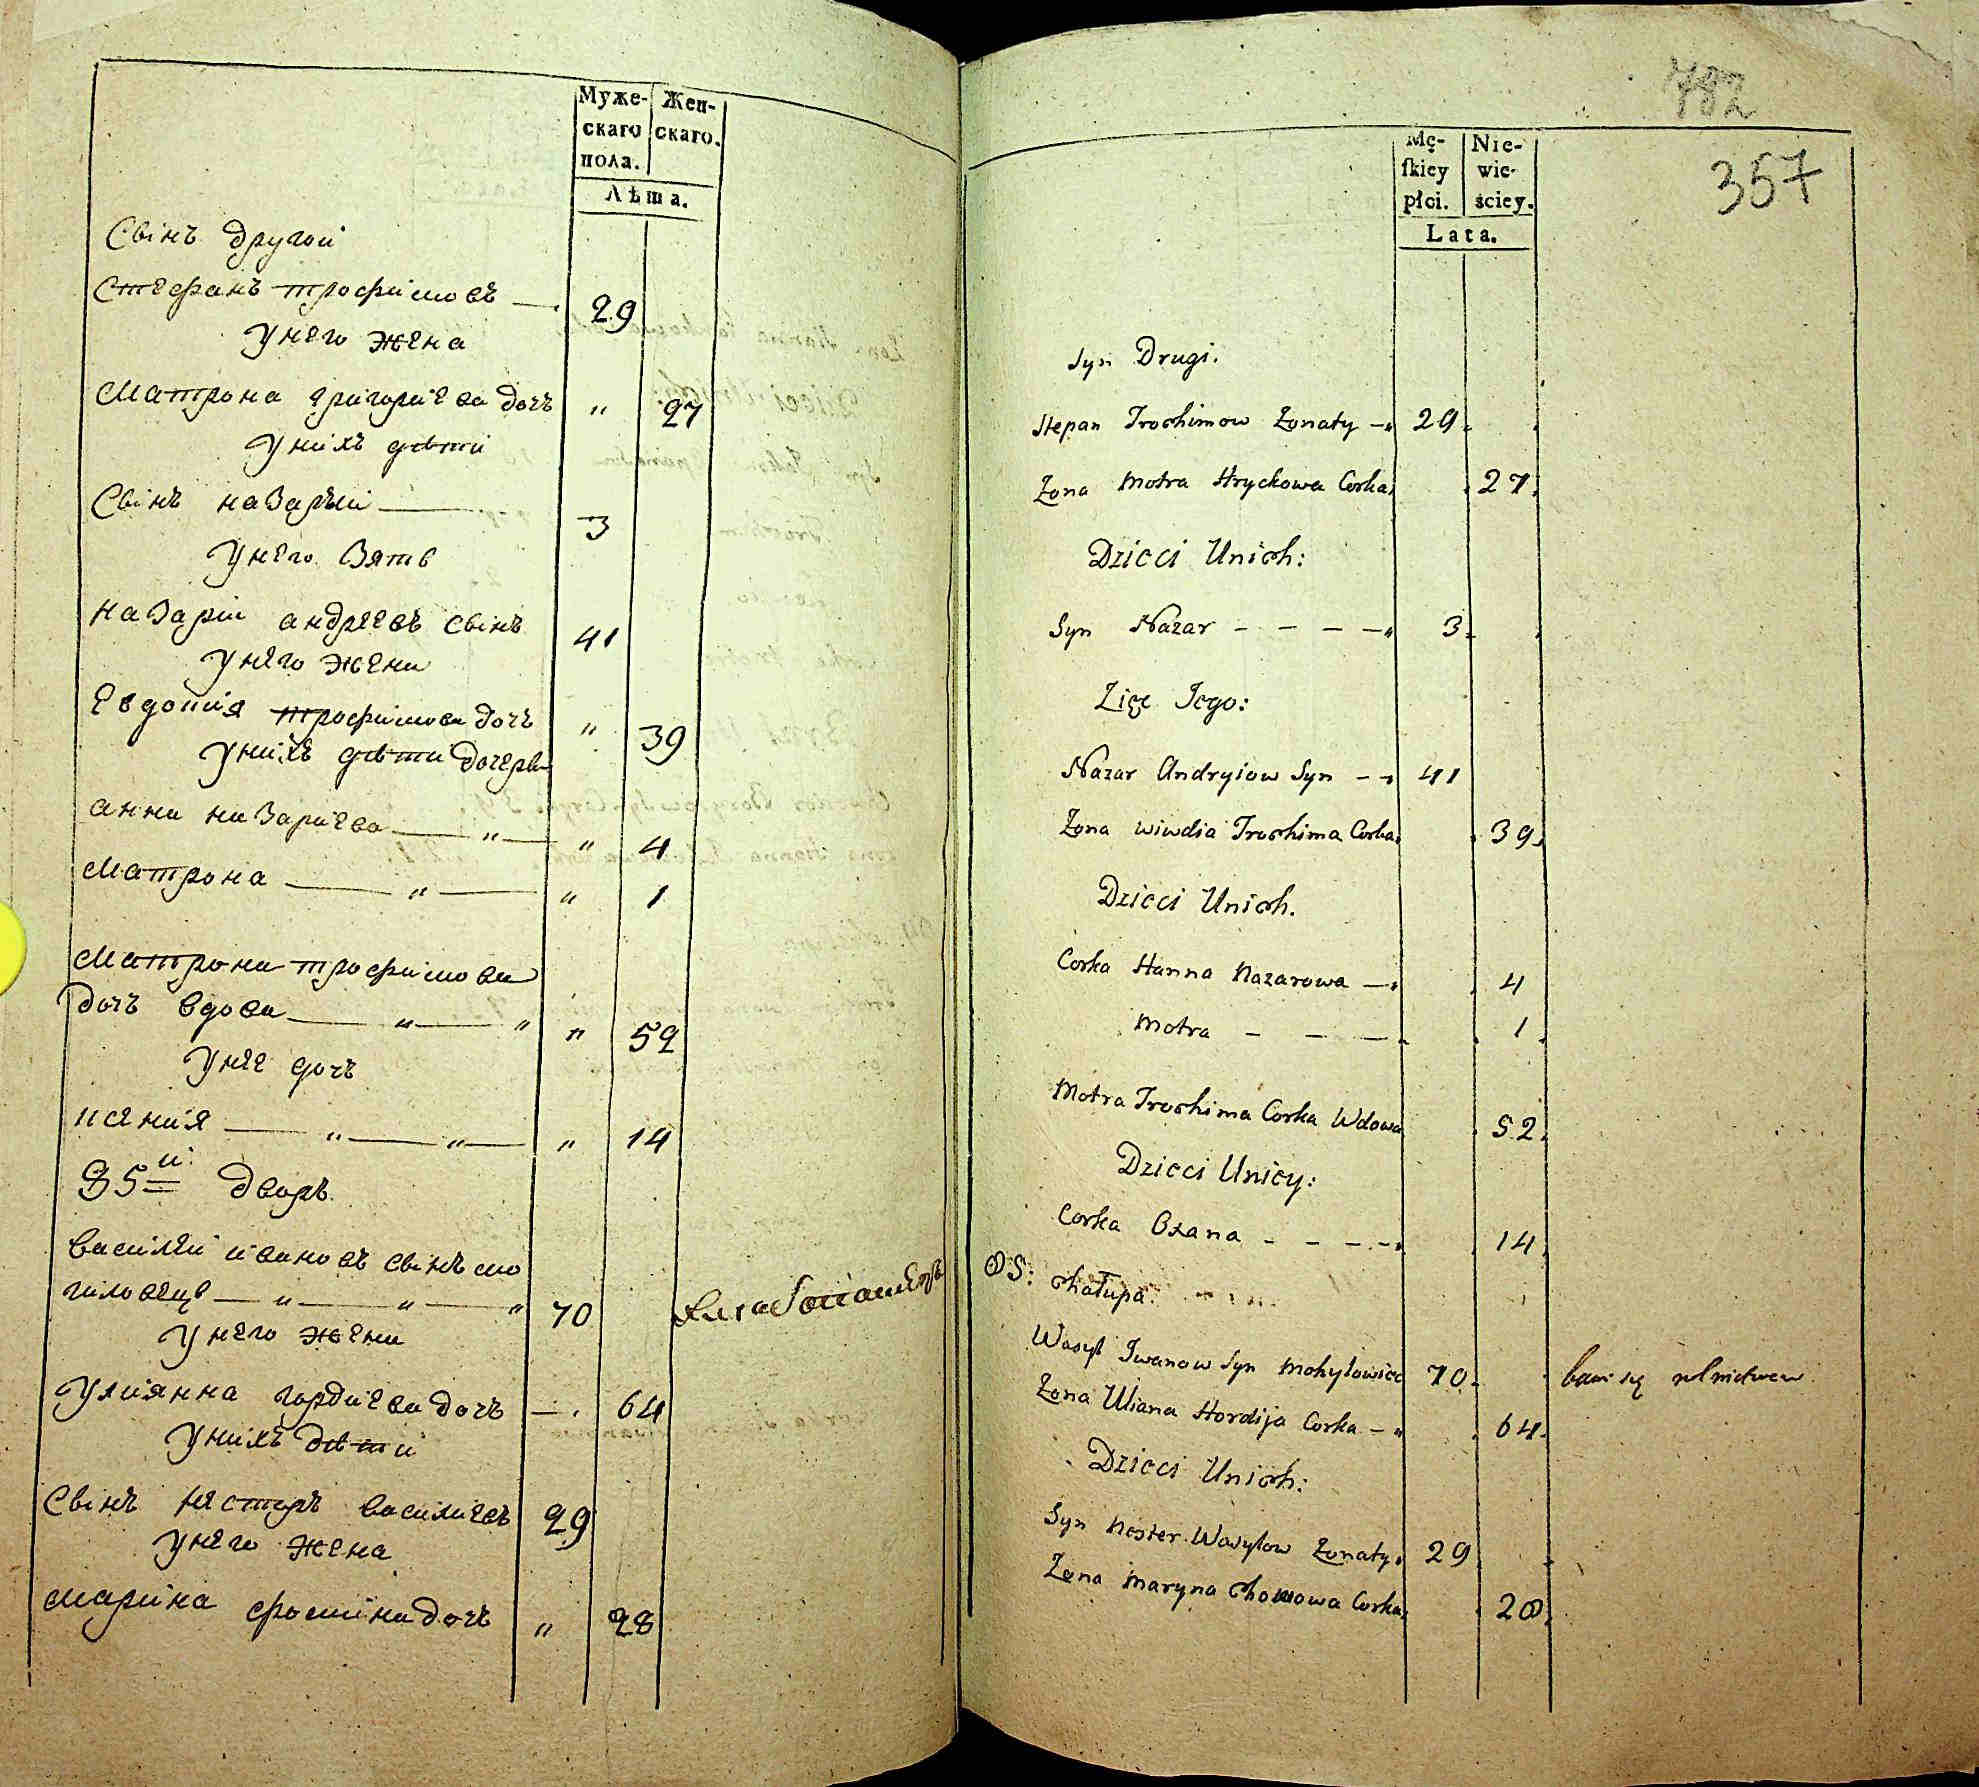 Муже-
скаго
пола.
Жен-
скаго.
Лѣта.
Свінъ другой
Стефанъ трофимовъ — 29
У него жена
Матрона григориева дочъ " 27
У нихъ дѣти
Свінъ назарѣй — 3
У него Зятъ
Назарій андреевъ свінъ 41
У него жена
Евдокия трофимова дочъ " 39
У нихъ дѣти дочери
анна назариева — " — " 4
Матрона — " — " 1
Матрона трофимова
дочъ вдова — " — " " 52
У нее дочъ
ксения — " — " — " 14
85й дворъ
Василѣй ивановъ свінъ мо
гиловецъ — " — " — " 70
У него жена
Улиянна гордиева дочъ — . 64
У нихъ дѣти
Свінъ нестеръ василиевъ 29
У него жена
Марина фомина дочъ " 28
782
357
Mę-
ſkiey
płci.
Nie-
wie-
ściey.
Lata.
Syn Drugi.
Stepan Trochimow Żonaty — 29
Żona Motra Hryckowa Corka 27
Dzieci Unich:
Syn Nazar - - - - 3
Zięc Jego:
Nazar Andryiow Syn - - 41
Żona Wiwdia Trochima Corka 39
Dzieci Unich.
Corka Hanna Nazarowa — 4
Motra - - - 1
Motra Trochima Corka Wdowa 52
Dzieci Unicy:
Corka Oxana - - - - 14
85: Chałupa.
Wasyl Iwanow Syn Mohyłowiec 70. bawi się rolnictwem
Żona Uliana Hordija Corka - 64
Dzieci Unich:
Syn Nester Wasylow Żonaty 29
Żona Maryna Chomowa Corka 28